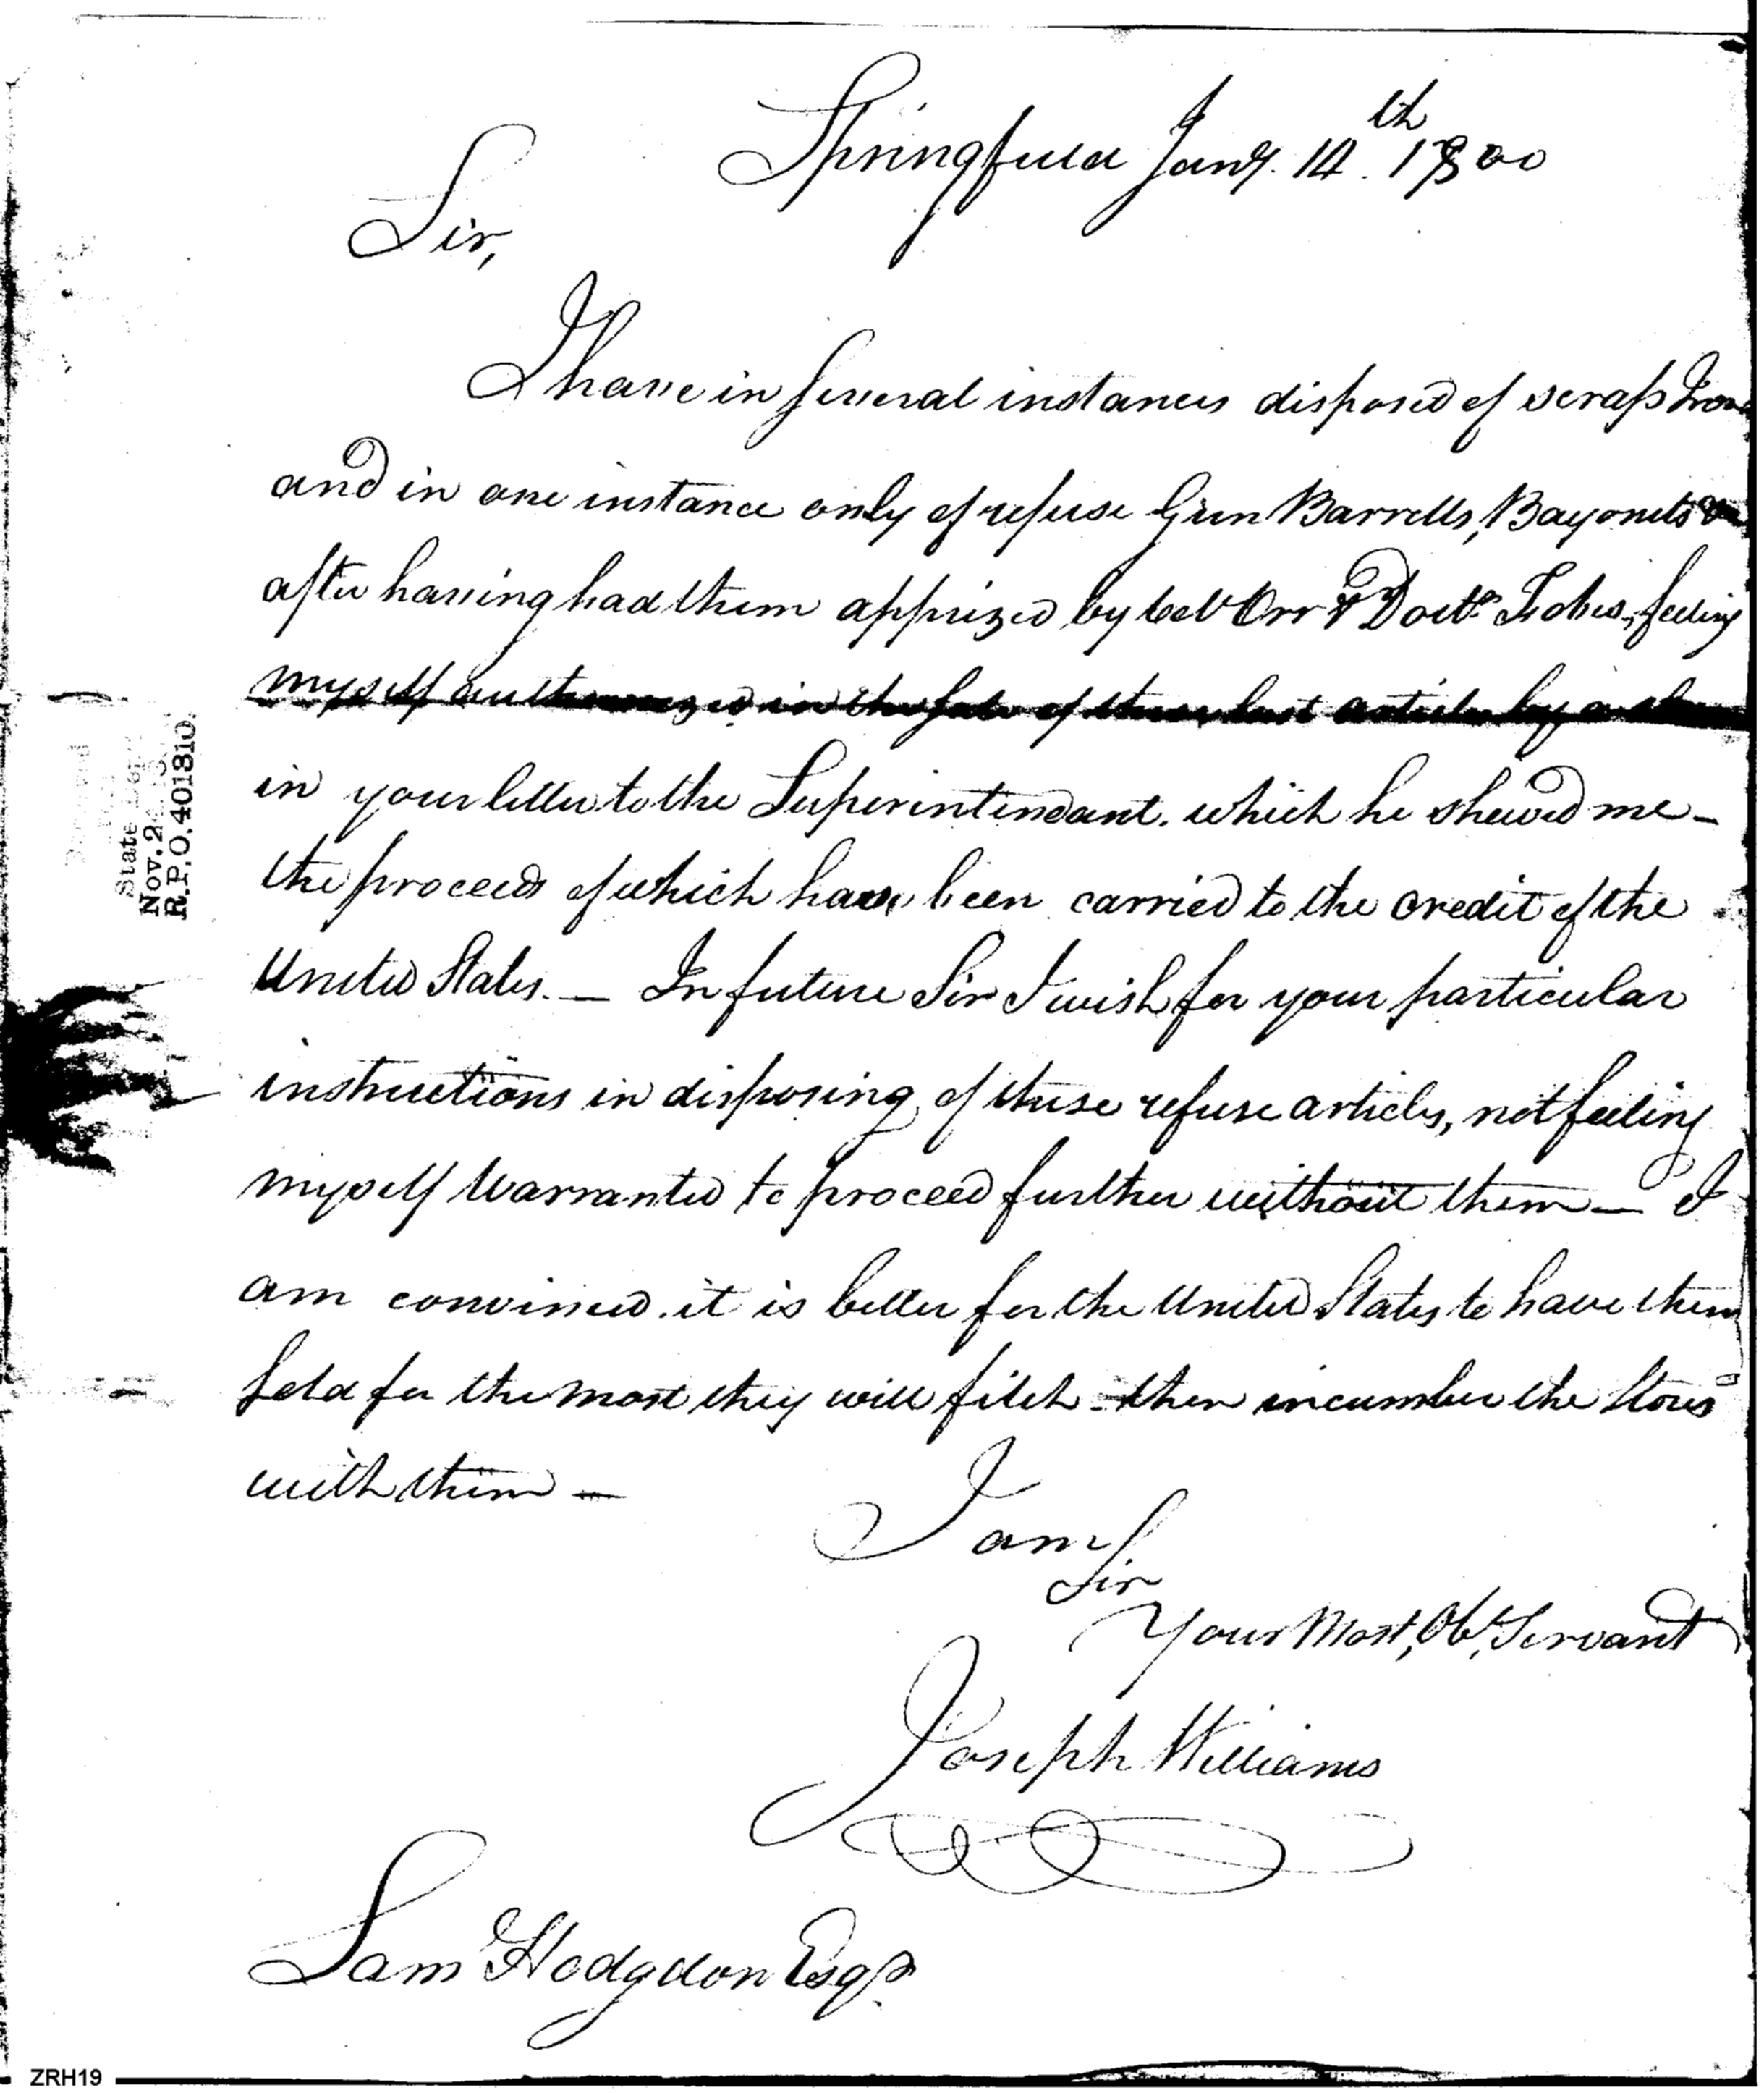 Springfield Jany. 14th. 1800
Sir,
I have in several instances disposed of scraps Iron
and in one instance only of refuse Gun Barrells, Bayonets &
after having had them apprized by Orr & Doctr. Fobes, feeling
myself authorized in the sale of these last articles by a
in your letter to the Superintendant. which he shewed me -
the proceeds of which have been carried to the credit of the
United States. — In future Sir I wish for your particular
instructions in disposing of these refuse articles, not feeling
myself Warranted to proceed further without them — I
am convinced it is better for the United States to have them
sold for the most they will fitch then incumber the Stores
with them —
I am
Sir
Your Most, Obt, Servant
Joseph Williams
Sam Hodgdon Esqr.
State
Nov. 2
R.P.O. 401810.
ZRH19